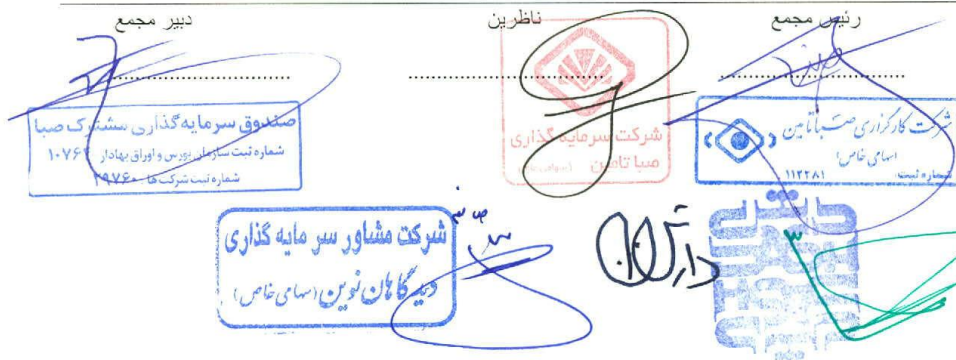 رئیس مجمع
ناظرین
دبیر مجمع
شرکت کارگزاری صبا تامین
(سهامی خاص)
شماره ثبت: ۱۱۲۲۸۱
شرکت سرمایه گذاری
صبا تامین
صندوق سرمایه گذاری مشترک صبا
شماره ثبت سازمان بورس و اوراق بهادار
شماره ثبت شرکت ها
شرکت مشاور سرمایه گذاری
دیدگاهان نوین (سهامی خاص)